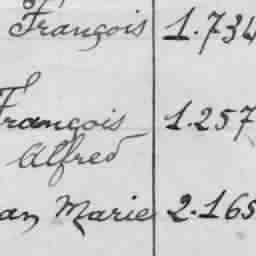 François 1.734
François 1.257
Alfred
an Marie 2.165